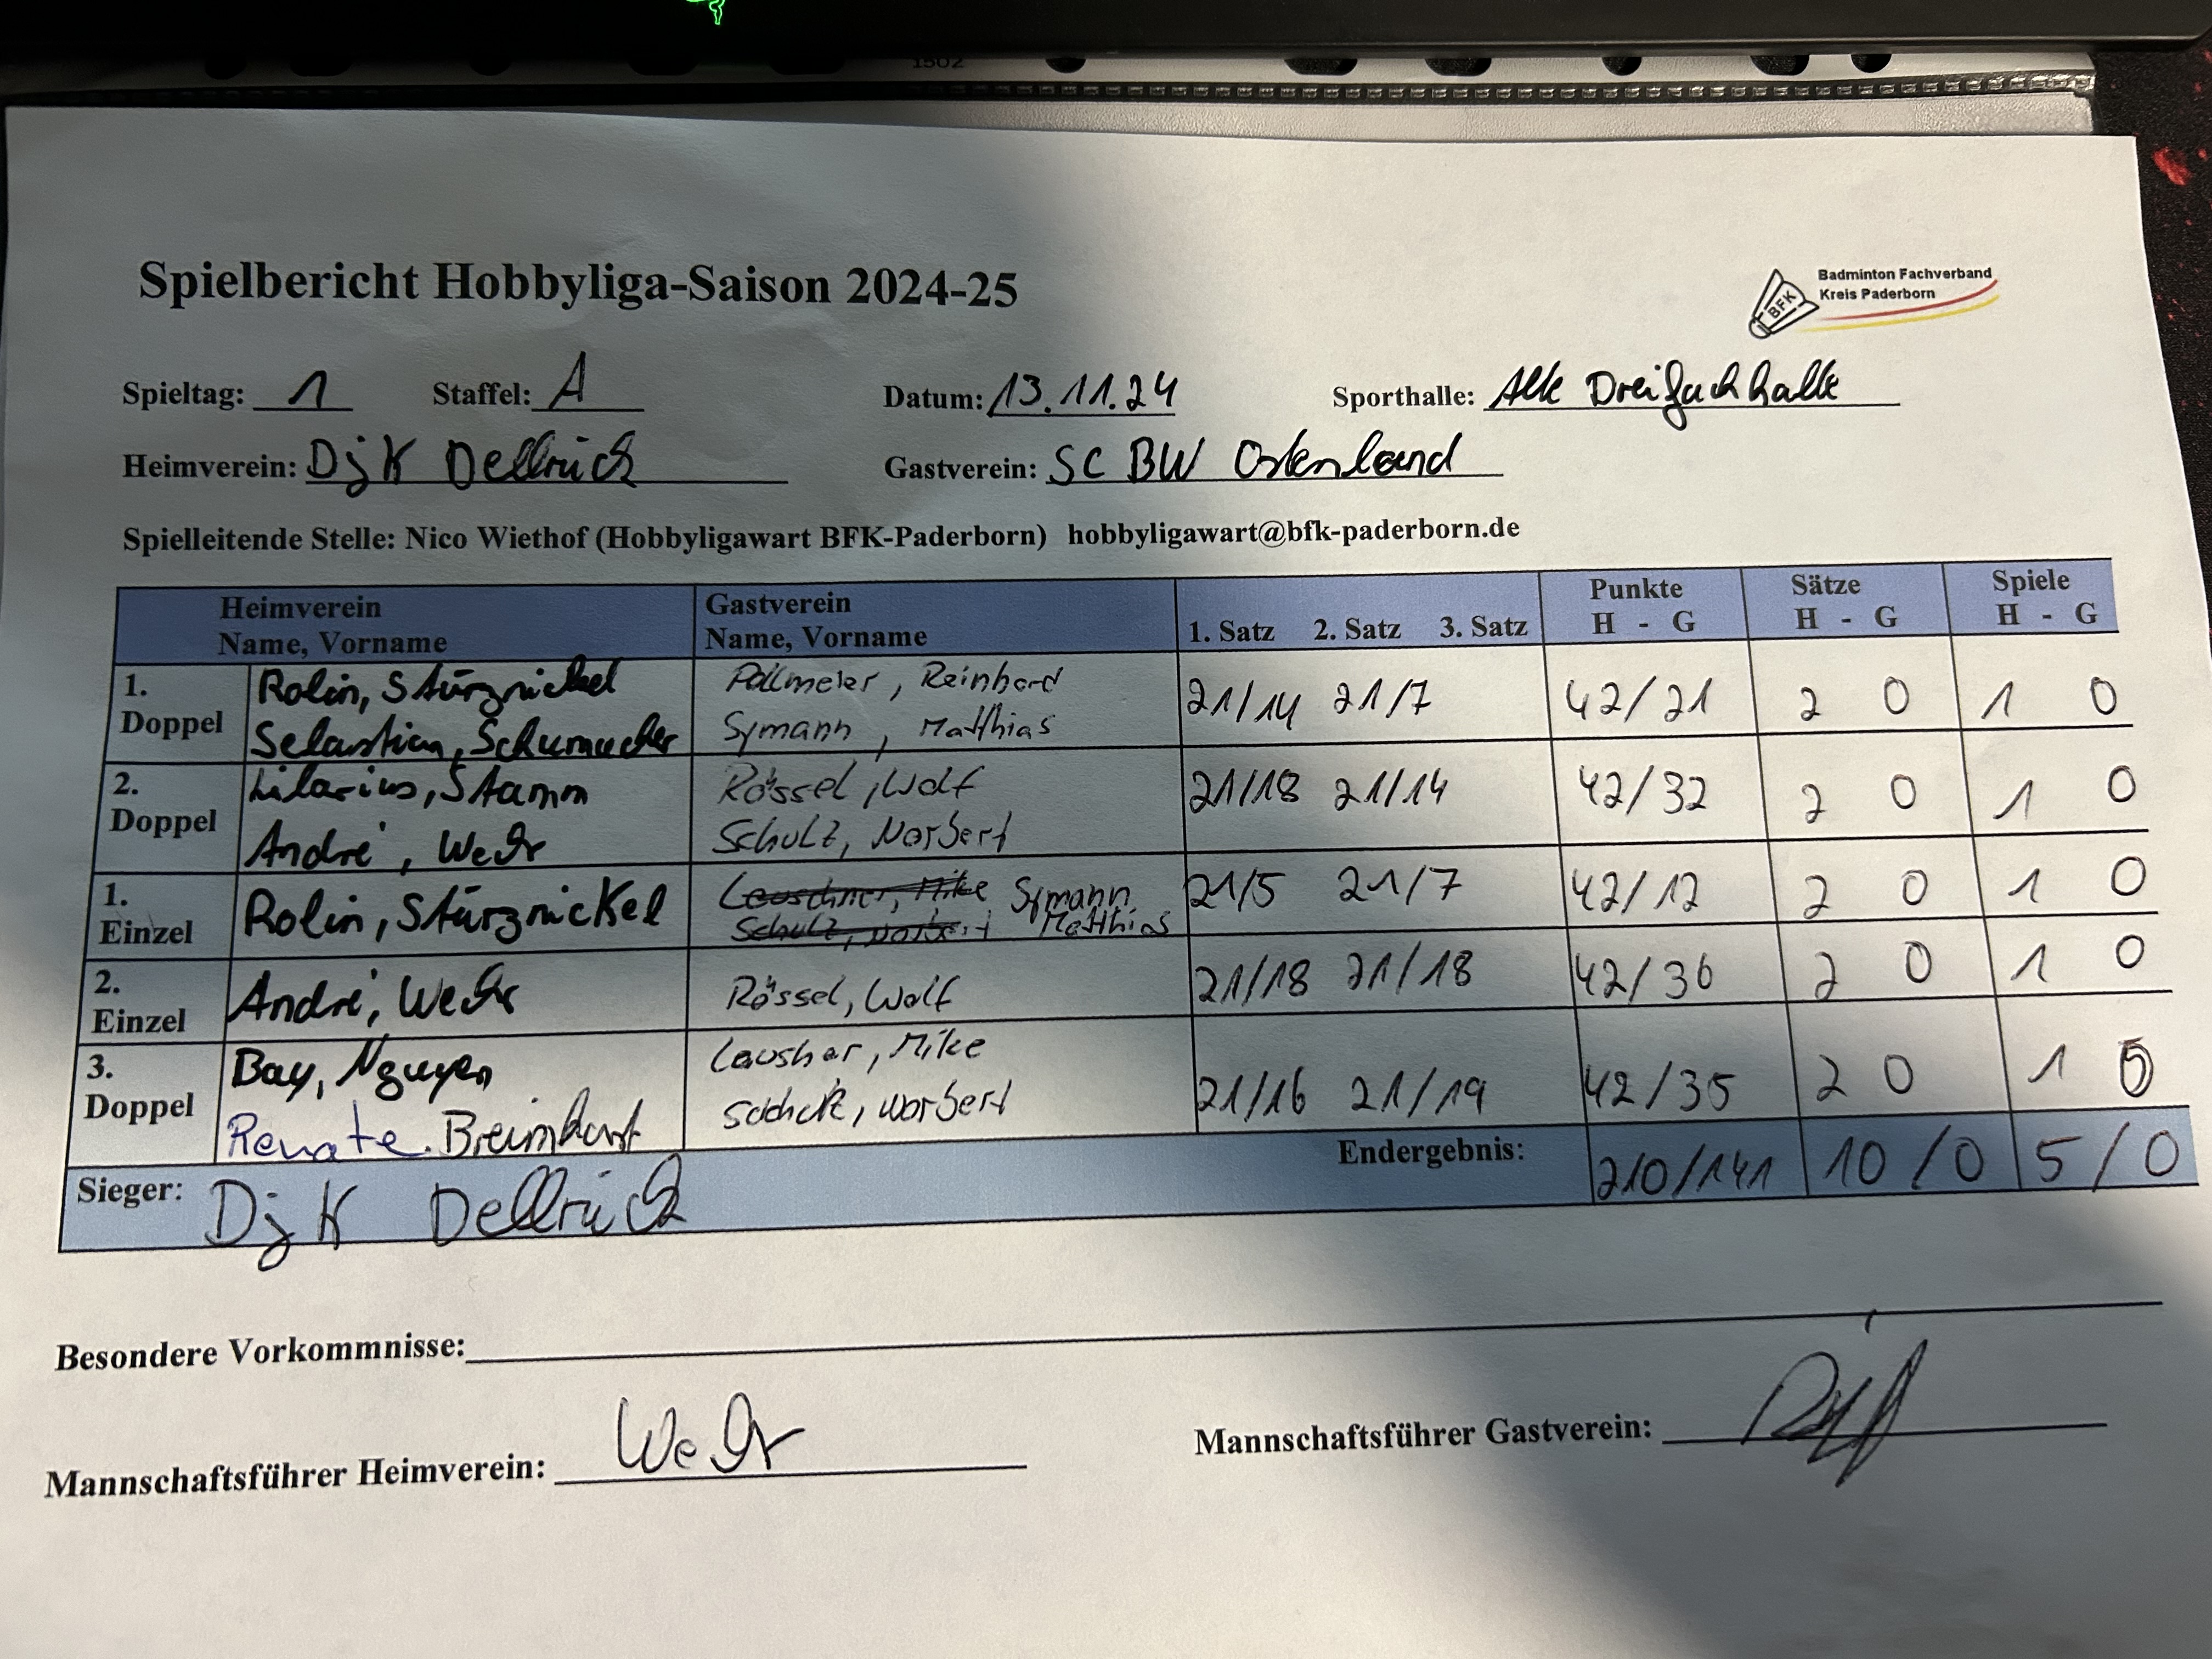 1502
Spielbericht Hobbyliga-Saison 2024-25
BFK
Badminton Fachverband
Kreis Paderborn
Spieltag: 1 Staffel: A Datum: 13.11.24 Sporthalle: Alte Dreifachhalle
Heimverein: DjK Delbrück Gastverein: SC BW Ostenland
Spielleitende Stelle: Nico Wiethof (Hobbyligawart BFK-Paderborn) hobbyligawart@bfk-paderborn.de
Heimverein Gastverein Punkte Sätze Spiele
Name, Vorname Name, Vorname 1. Satz 2. Satz 3. Satz H - G H - G H - G
1. Rolin, Stürznickel Pollmeier, Reinhard
Doppel Sebastian, Schumacher Symann, Matthias 21/14 21/7 42/21 2 0 1 0
2. Hilarius, Stamm Rössel, Wolf
Doppel André, Wehr Schulz, Norbert 21/18 21/14 42/32 2 0 1 0
1. Rolin, Stürznickel Leuschner, Mike Symann,
Einzel Schulz, Norbert Matthias 21/5 21/7 42/12 2 0 1 0
2. André, Wehr Rössel, Wolf
Einzel 21/18 21/18 42/36 2 0 1 0
3. Bay, Nguyen Leushar, Mike
Doppel Renate. Breimhorst Norbert 21/16 21/19 42/35 2 0 1 0
Endergebnis: 210/141 10/0 5/0
Sieger: DjK Delbrück
Besondere Vorkommnisse:
Mannschaftsführer Heimverein: Wehr Mannschaftsführer Gastverein: